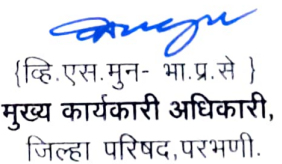 {व्हि.एस.मुन- भा.प्र.से }
मुख्य कार्यकारी अधिकारी,
जिल्हा परिषद,परभणी.